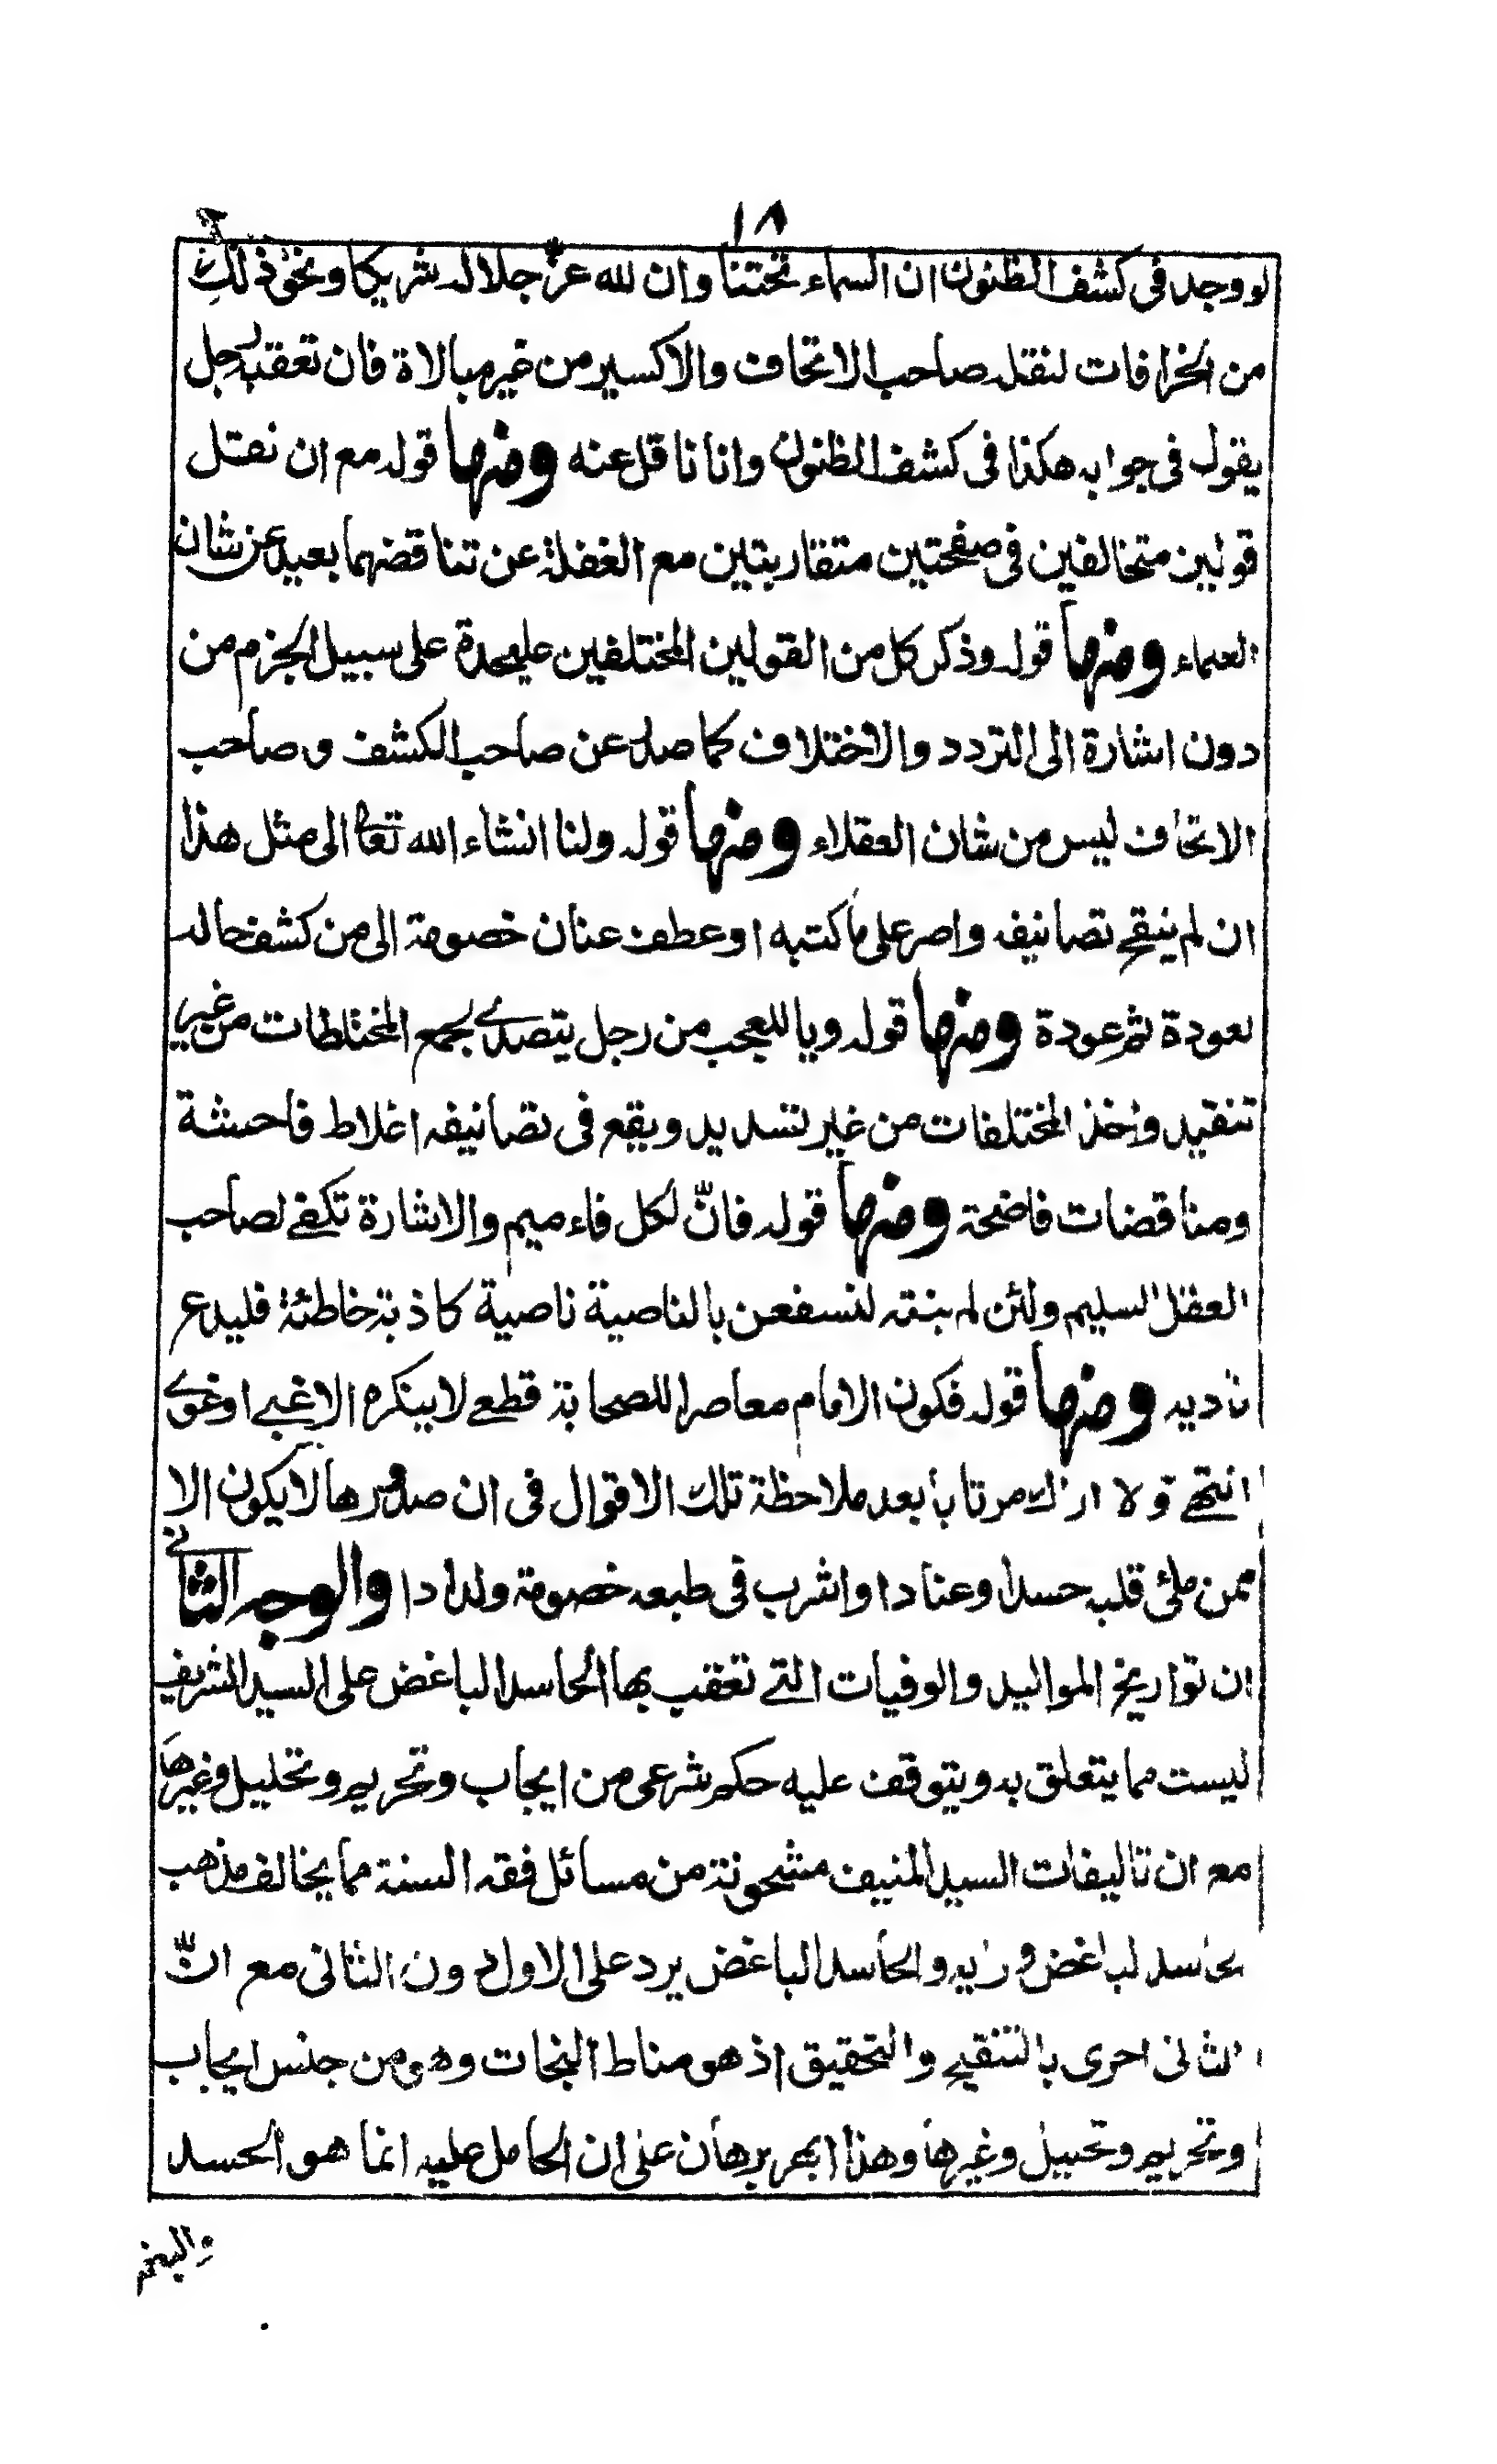 ١٨
لو وجد فى كشف الظنون ان السماء تحتنا وان لله عزّ جلاله شريكا ونحو ذلك
من الخرافات لنقله صاحب الاتحاف والاكسير من غير مبالاة فان تعقبه رجل
يقول فى جوابه هكذا فى كشف الظنون وانا ناقل عنه ومنها قوله مع ان نقل
قولين متخالفين فى صفحتين متقاربتين مع الغفلة عن تناقضهما بعيد عن شان
العلماء ومنها قوله وذكر كل من القولين المختلفين عليحدة على سبيل الجزم من
دون اشارة الى التردد والاختلاف كما صدر عن صاحب الكشف وصاحب
الاتحاف ليس من شان العقلاء ومنها قوله ولنا انشاء الله تعالى الى مثل هذا
ان لم ينقح تصانيفه واصر على ما كتبه او عطف عنان خصومة الى من كشف حاله
لعودة ثم عودة ومنها قوله ويا للعجب من رجل يتصدى لجمع المختلطات من غير
تنقيد واخذ المختلفات من غير تسديد ويقع فى تصانيفه اغلاط فاحشة
ومناقضات فاضحة ومنها قوله فانّ لكل فاء ميم والاشارة تكفى لصاحب
العقل السليم ولئن لم ينته لنسفعن بالناصية ناصية كاذبة خاطئة فليدع
ناديه ومنها قوله فكون الامام معاصرا للصحابة قطعى لا ينكره الا غبى او غوى
انتهى ولا اراك مرتابا بعد ملاحظة تلك الاقوال فى ان صدورها لا يكون الا
ممن ملئ قلبه حسدا وعنادا واشرب فى طبعه خصومة ولدادا والوجه الثانى
ان تواريخ المواليد والوفيات التى تعقب بها الحاسد الباغض على السيد الشريف
ليست مما يتعلق به ويتوقف عليه حكم شرعى من ايجاب وتحريم وتحليل وغيرها
مع ان تاليفات السيد المنيف مشحونة من مسائل فقه السنة مما يخالف مذهب
الحاسد الباغض ورايه والحاسد الباغض يرد على الاول دون الثانى مع انّ
الثانى احرى بالتنقيح والتحقيق اذ هو مناط النجات وهو من جنس ايجاب
وتحريم وتحليل وغيرها وهذا ابهر برهان على ان الحامل عليه انما هو الحسد